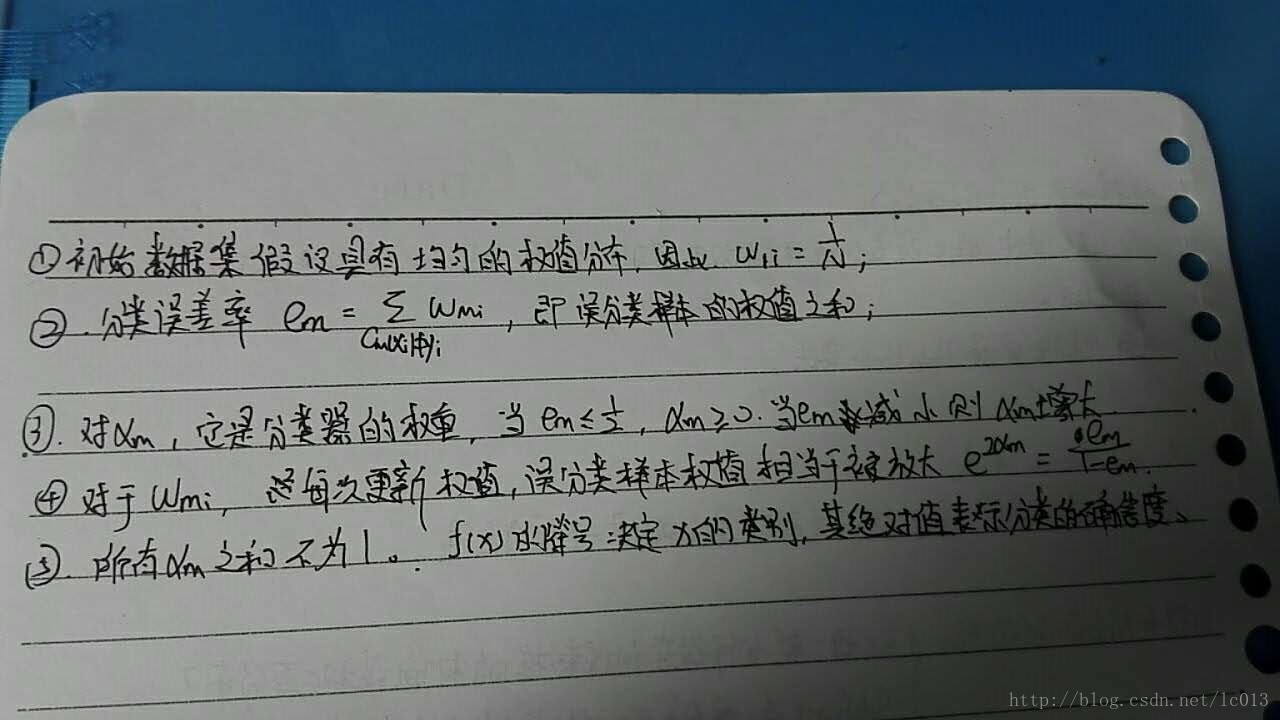 ①初始数据集假设具有均匀的权值分布,因此 w₁ᵢ = 1/N;
②.分类误差率 eₘ = Σ wₘᵢ, 即误分类样本的权值之和;
Cₘ(xᵢ)≠yᵢ
③.对αₘ,它是分类器的权重,当 eₘ≤1/2, αₘ≥0.当eₘ减小则αₘ增大.
④对于wₘᵢ, 每次更新权值,误分类样本权值相当于被放大 e^(2αₘ) = eₘ/(1-eₘ).
⑤.所有αₘ之和不为1。f(x)的符号决定x的类别,其绝对值表示分类的确信度、
http://blog.csdn.net/lc013